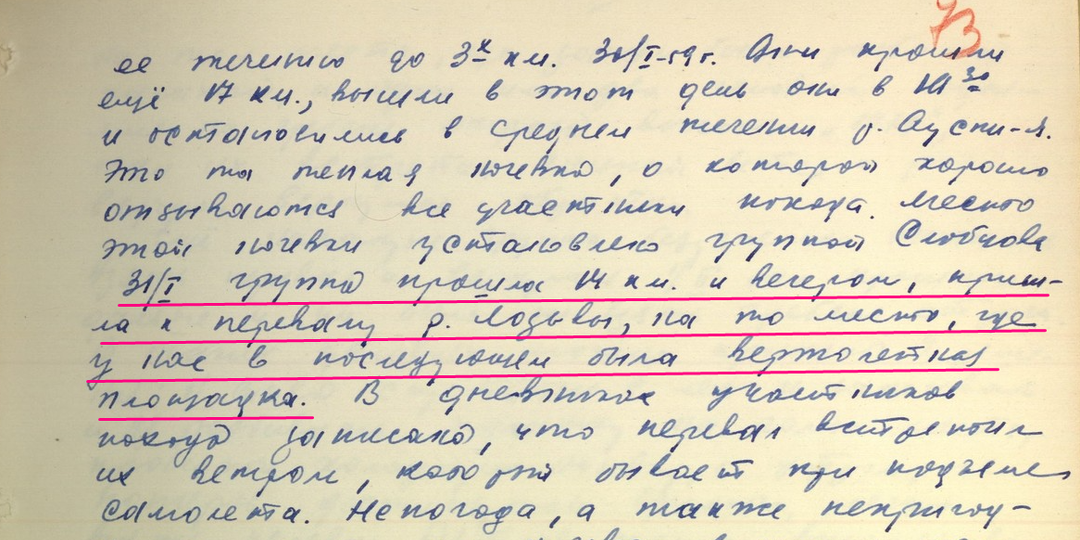 73
ее течению до 3х км. 30/I-59г. Они прошли
ещё 17 км., вышли в этот день они в 10 30
и остановились в среднем течении р. Ауспи-я.
Это та теплая ночевка, о которой хорошо
отзываются все участники похода. Место
этой ночевки установлено группой Слобцова
31/I группа прошла 14 км. и вечером, приш-
ла к перевалу р. Лозьвы, на то место, где
у нас в последующем была вертолетная
площадка. В дневниках участников
похода записано, что перевал встретил
их ветром, который бывает при подъеме
самолета. Непогода, а также непригод-